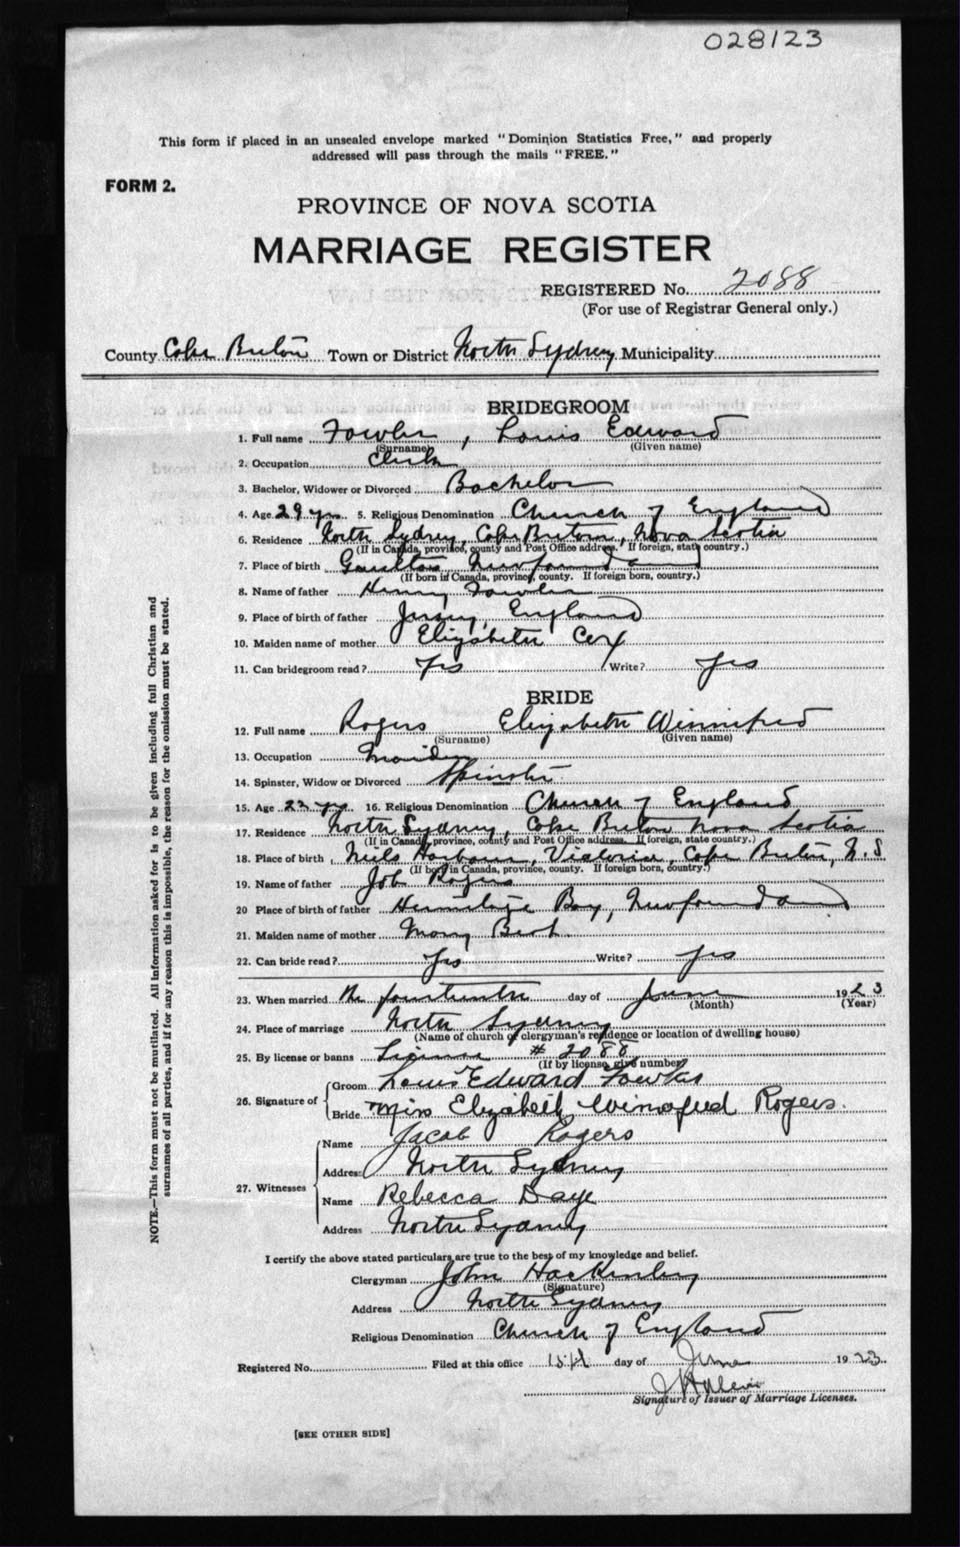 028123
This form if placed in an unsealed envelope marked "Dominion Statistics Free," and properly
addressed will pass through the mails "FREE."
FORM 2.
PROVINCE OF NOVA SCOTIA
MARRIAGE REGISTER
REGISTERED No. 2088
(For use of Registrar General only.)
County Cape Breton Town or District North Sydney Municipality
BRIDEGROOM
1. Full name Fowler, Louis Edward
(Surname) (Given name)
2. Occupation Clerk
3. Bachelor, Widower or Divorced Bachelor
4. Age 29 yrs. 5. Religious Denomination Church of England
6. Residence North Sydney, Cape Breton, Nova Scotia
(If in Canada, province, county and Post Office address. If foreign, state country.)
7. Place of birth Newfoundland
(If born in Canada, province, county. If foreign born, country.)
8. Name of father Henry Fowler
9. Place of birth of father Jersey, England
10. Maiden name of mother Elizabeth Cox
11. Can bridegroom read? Yes Write? Yes
BRIDE
12. Full name Rogers Elizabeth Winnifred
(Surname) (Given name)
13. Occupation Maiden
14. Spinster, Widow or Divorced Spinster
15. Age 22 yrs. 16. Religious Denomination Church of England
17. Residence North Sydney, Cape Breton Nova Scotia
(If in Canada, province, county and Post Office address. If foreign, state country.)
18. Place of birth Neils Harbour, Victoria, Cape Breton, N.S
(If born in Canada, province, county. If foreign born, country.)
19. Name of father Job Rogers
20 Place of birth of father Hermitage Bay, Newfoundland
21. Maiden name of mother Mary
22. Can bride read? Yes Write? Yes
23. When married the fourteenth day of June 1923
(Month) (Year)
24. Place of marriage North Sydney
(Name of church or clergyman's residence or location of dwelling house)
25. By license or banns License # 2088
(If by license, give number)
26. Signature of
Groom Louis Edward Fowler
Bride Miss Elizabeth Winnifred Rogers.
27. Witnesses
Name Jacob Rogers
Address North Sydney
Name Rebecca Daye
Address North Sydney
I certify the above stated particulars are true to the best of my knowledge and belief.
Clergyman John Hackenley
(Signature)
Address North Sydney
Religious Denomination Church of England
Registered No. Filed at this office day of June 1923.
Signature of Issuer of Marriage Licenses.
[SEE OTHER SIDE]
NOTE.—This form must not be mutilated. All information asked for is to be given including full Christian and
surnames of all parties, and if for any reason this is impossible, the reason for the omission must be stated.